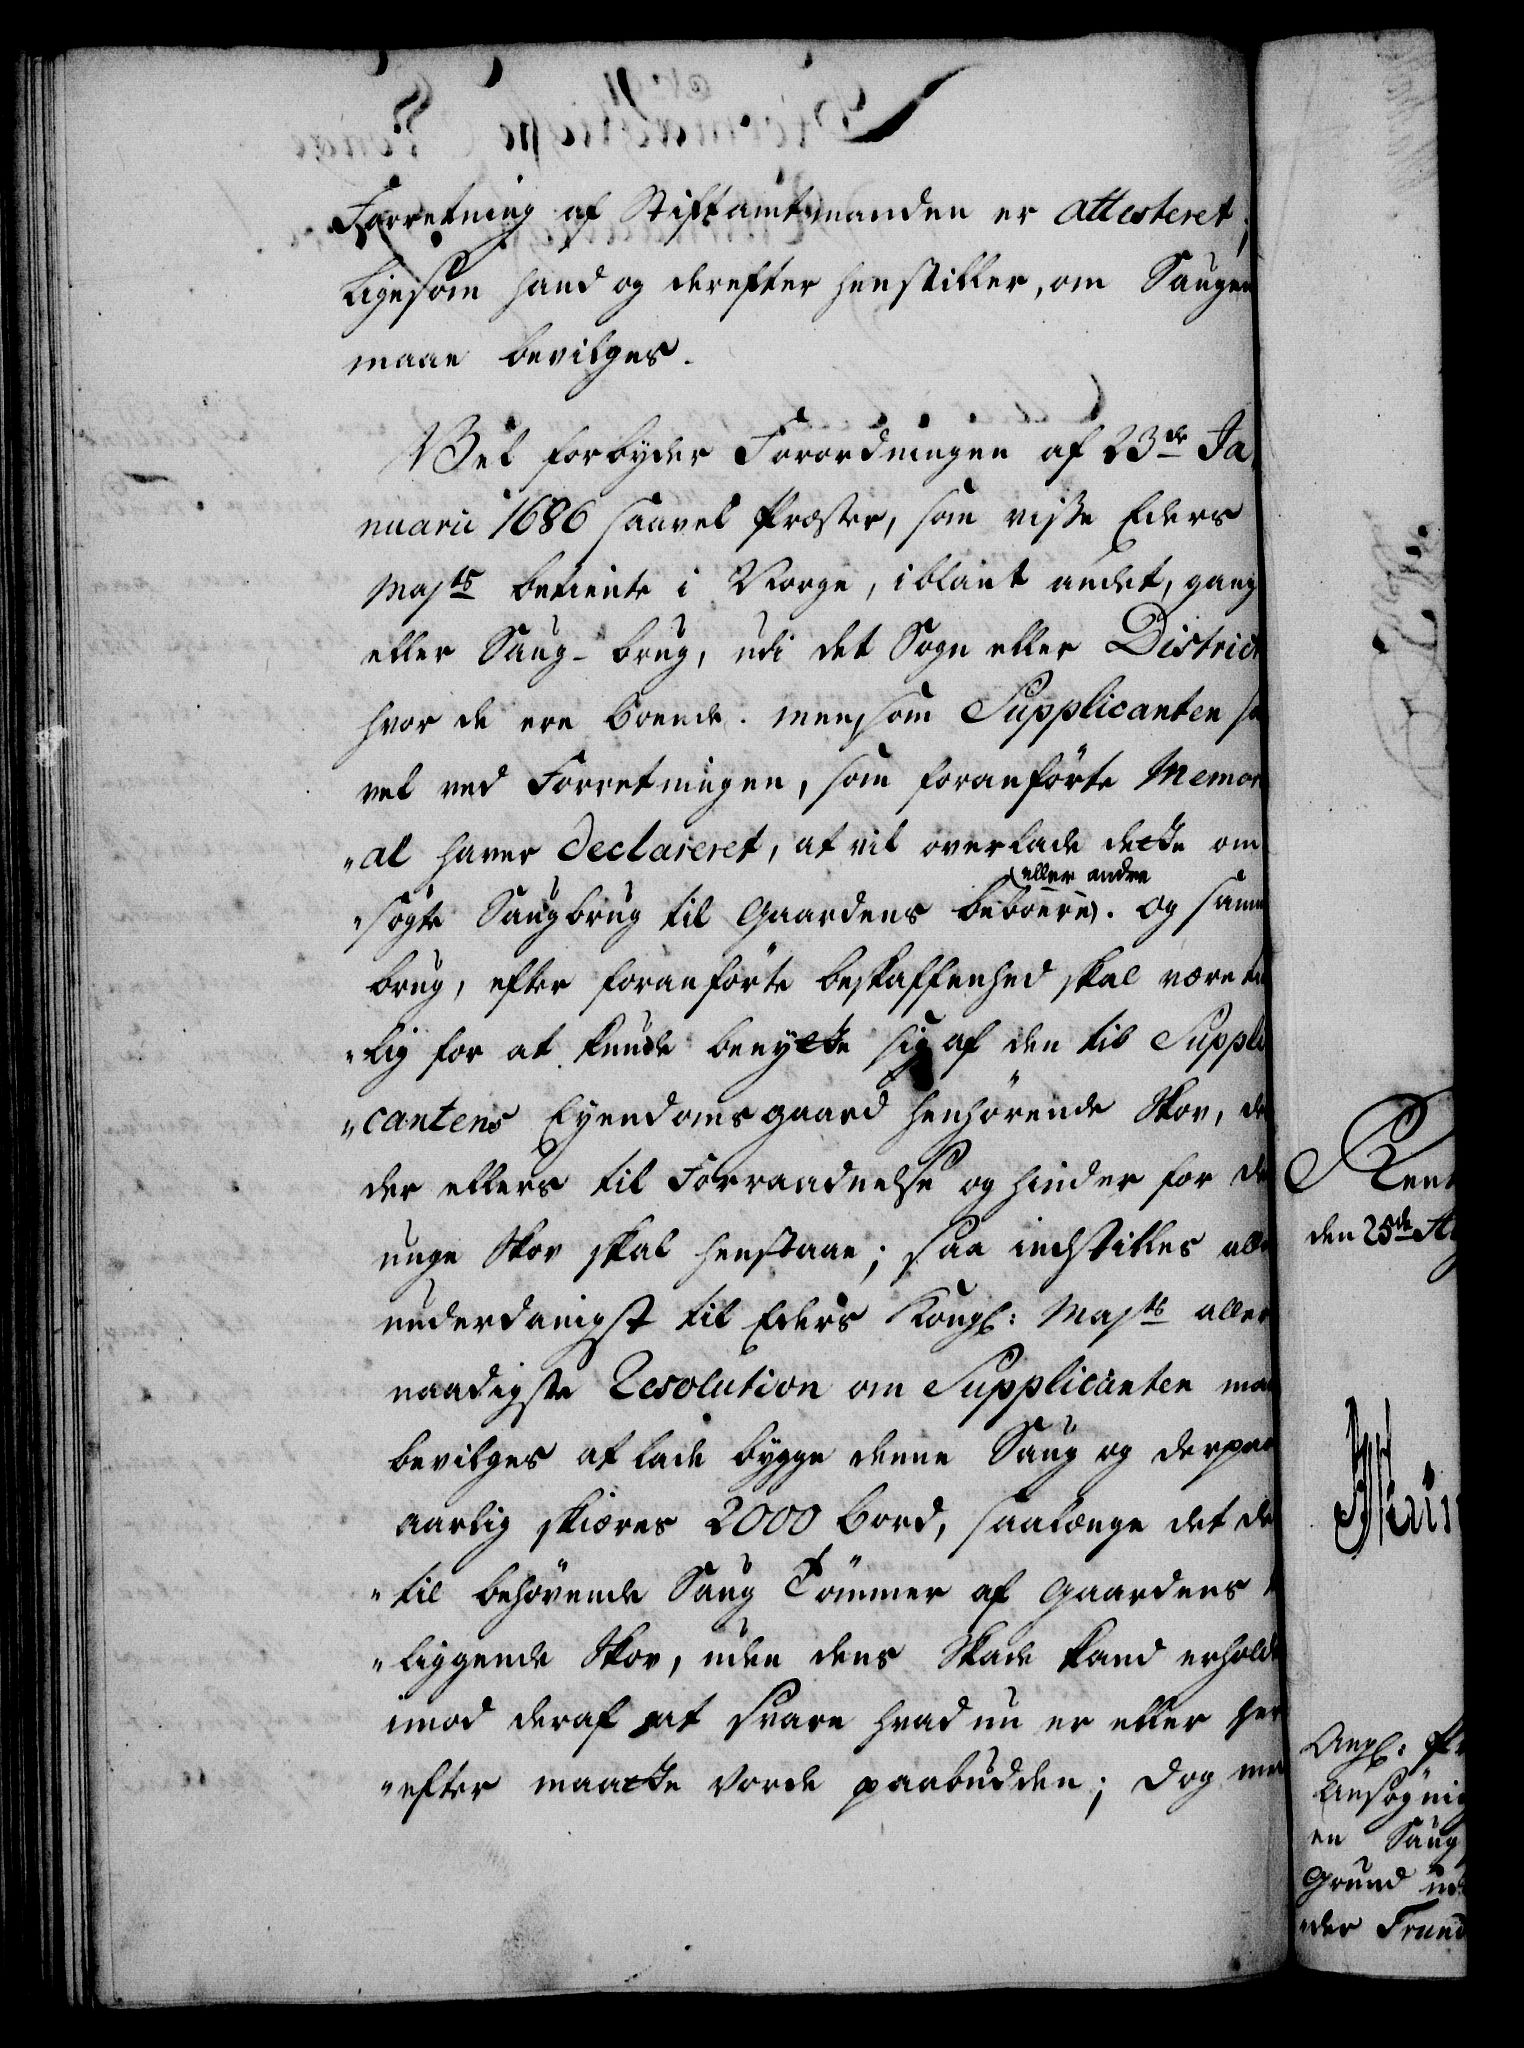 Forretning af Stiftamtmanden er attesteret;
ligesom hand og derefter henstiller, om Saugen
maae bevilges.
Vel forbyder Forordningen af 23de Ja,
nuarii 1686 saavel Præster, som visse Eders
Majts betiente i Norge, iblant andet, gang
eller Saug-brug, udi det Sogn eller District
hvor de ere boende. men som Supplicanten
vel ved Forretningen, som foranförte Memori
"al haver declareret, at vil overlade dette om
eller andre
"søgte Saugbrug til Gaardens beboere. og samme
brug, efter foranförte beskaffenhed skal være
"lig for at kunde benytte sig af den til Suppli
"cantens Eyendoms gaard henhörende Skov,
der ellers til Forraadnelse og hinder for
unge Skov skal henstaae; saa indstilles aller
underdanigst til Eders Kongl: Majts aller
naadigste Resolution om Supplicanten maae
bevilges at lade bygge denne Saug og derpaa
aarlig skiæres 2000 bord, saalænge det der
"til behövende Saug Tömmer af Gaardens
"liggende Skov, uden dens Skade kand erholdes
imod deraf at svare hvad nu er eller her
"efter maatte vorde paabudden; dog
Rent
den 25de
Angl:
Ansøgning
en Saug
Grund
der